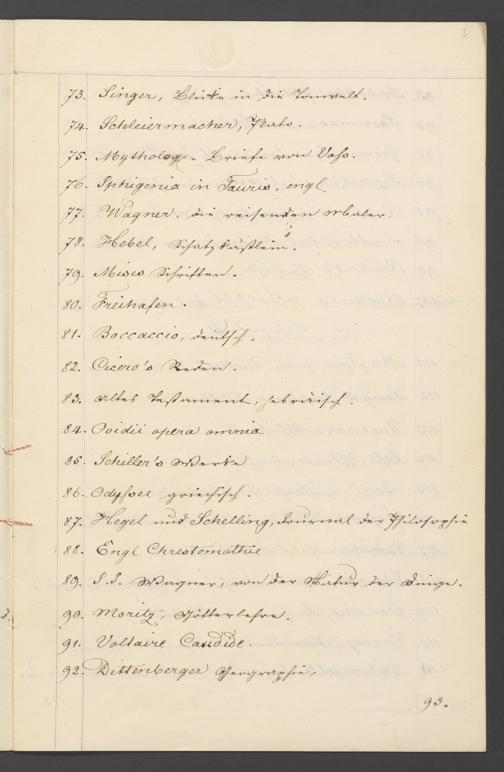 3
73. Singer, Blicke in die Tonwelt.
74. Schleiermacher, Plato.
75. Mytholog. Briefe von Voss.
76. Iphigenia in Tauris, engl.
77. Wagner, die reisenden Maler.
78. Hebel, Schatzkästlein.
79. Mises Schriften.
80. Freihafen.
81. Boccaccio, deutsch.
82. Cicero's Reden.
83. Altes Testament, hebräisch.
84. Ovidii opera omnia
85. Schiller's Werke
86. Odyssee griechisch.
87. Hegel und Schelling, Journal der Philosophie
88. Engl Chrestomathie
89. J. J. Wagner, von der Natur der Dinge.
90. Moritz, Götterlehre.
91. Voltaire Candide.
92. Dittenberger Geographie.
93.